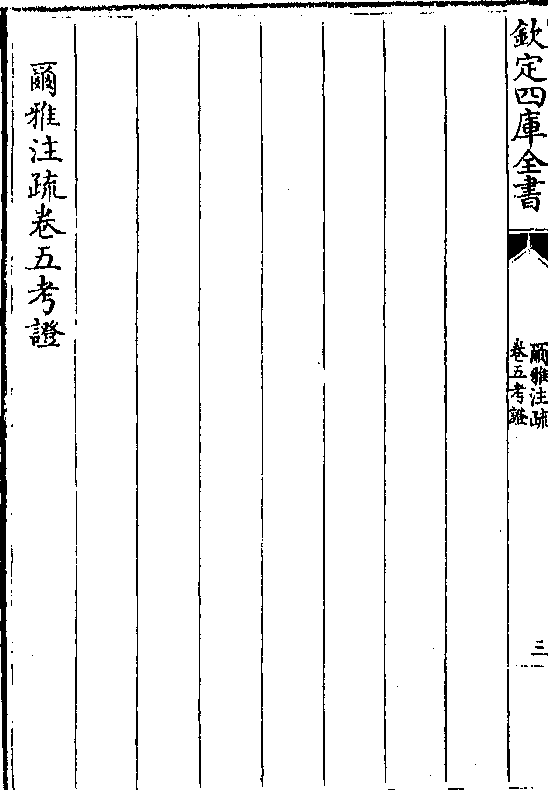 欽定四庫全書
爾雅注疏
卷五考證
三
爾雅注疏卷五考證